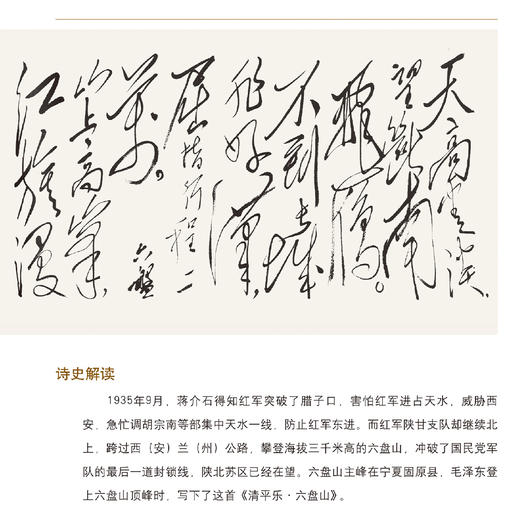 天高云淡，
望断南
飛雁。
不到长城
非好漢，
屈指行程二
萬。
六盤
山上高峯，
红旗漫
诗史解读
1935年9月，蒋介石得知红军突破了腊子口，害怕红军进占天水，威胁西
安，急忙调胡宗南等部集中天水一线，防止红军东进。而红军陕甘支队却继续北
上，跨过西（安）兰（州）公路，攀登海拔三千米高的六盘山，冲破了国民党军
队的最后一道封锁线，陕北苏区已经在望。六盘山主峰在宁夏固原县，毛泽东登
上六盘山顶峰时，写下了这首《清平乐·六盘山》。